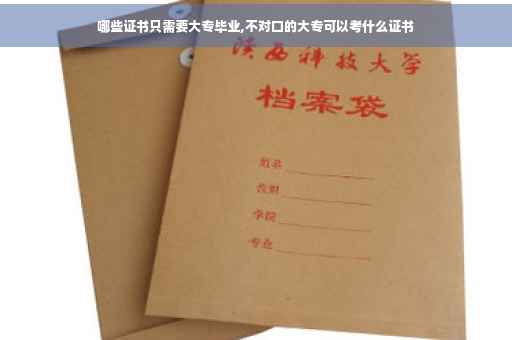 哪些证书只需要大专毕业,不对口的大专可以考什么证书
陕西科技大学
档案袋
姓名
学院
专业